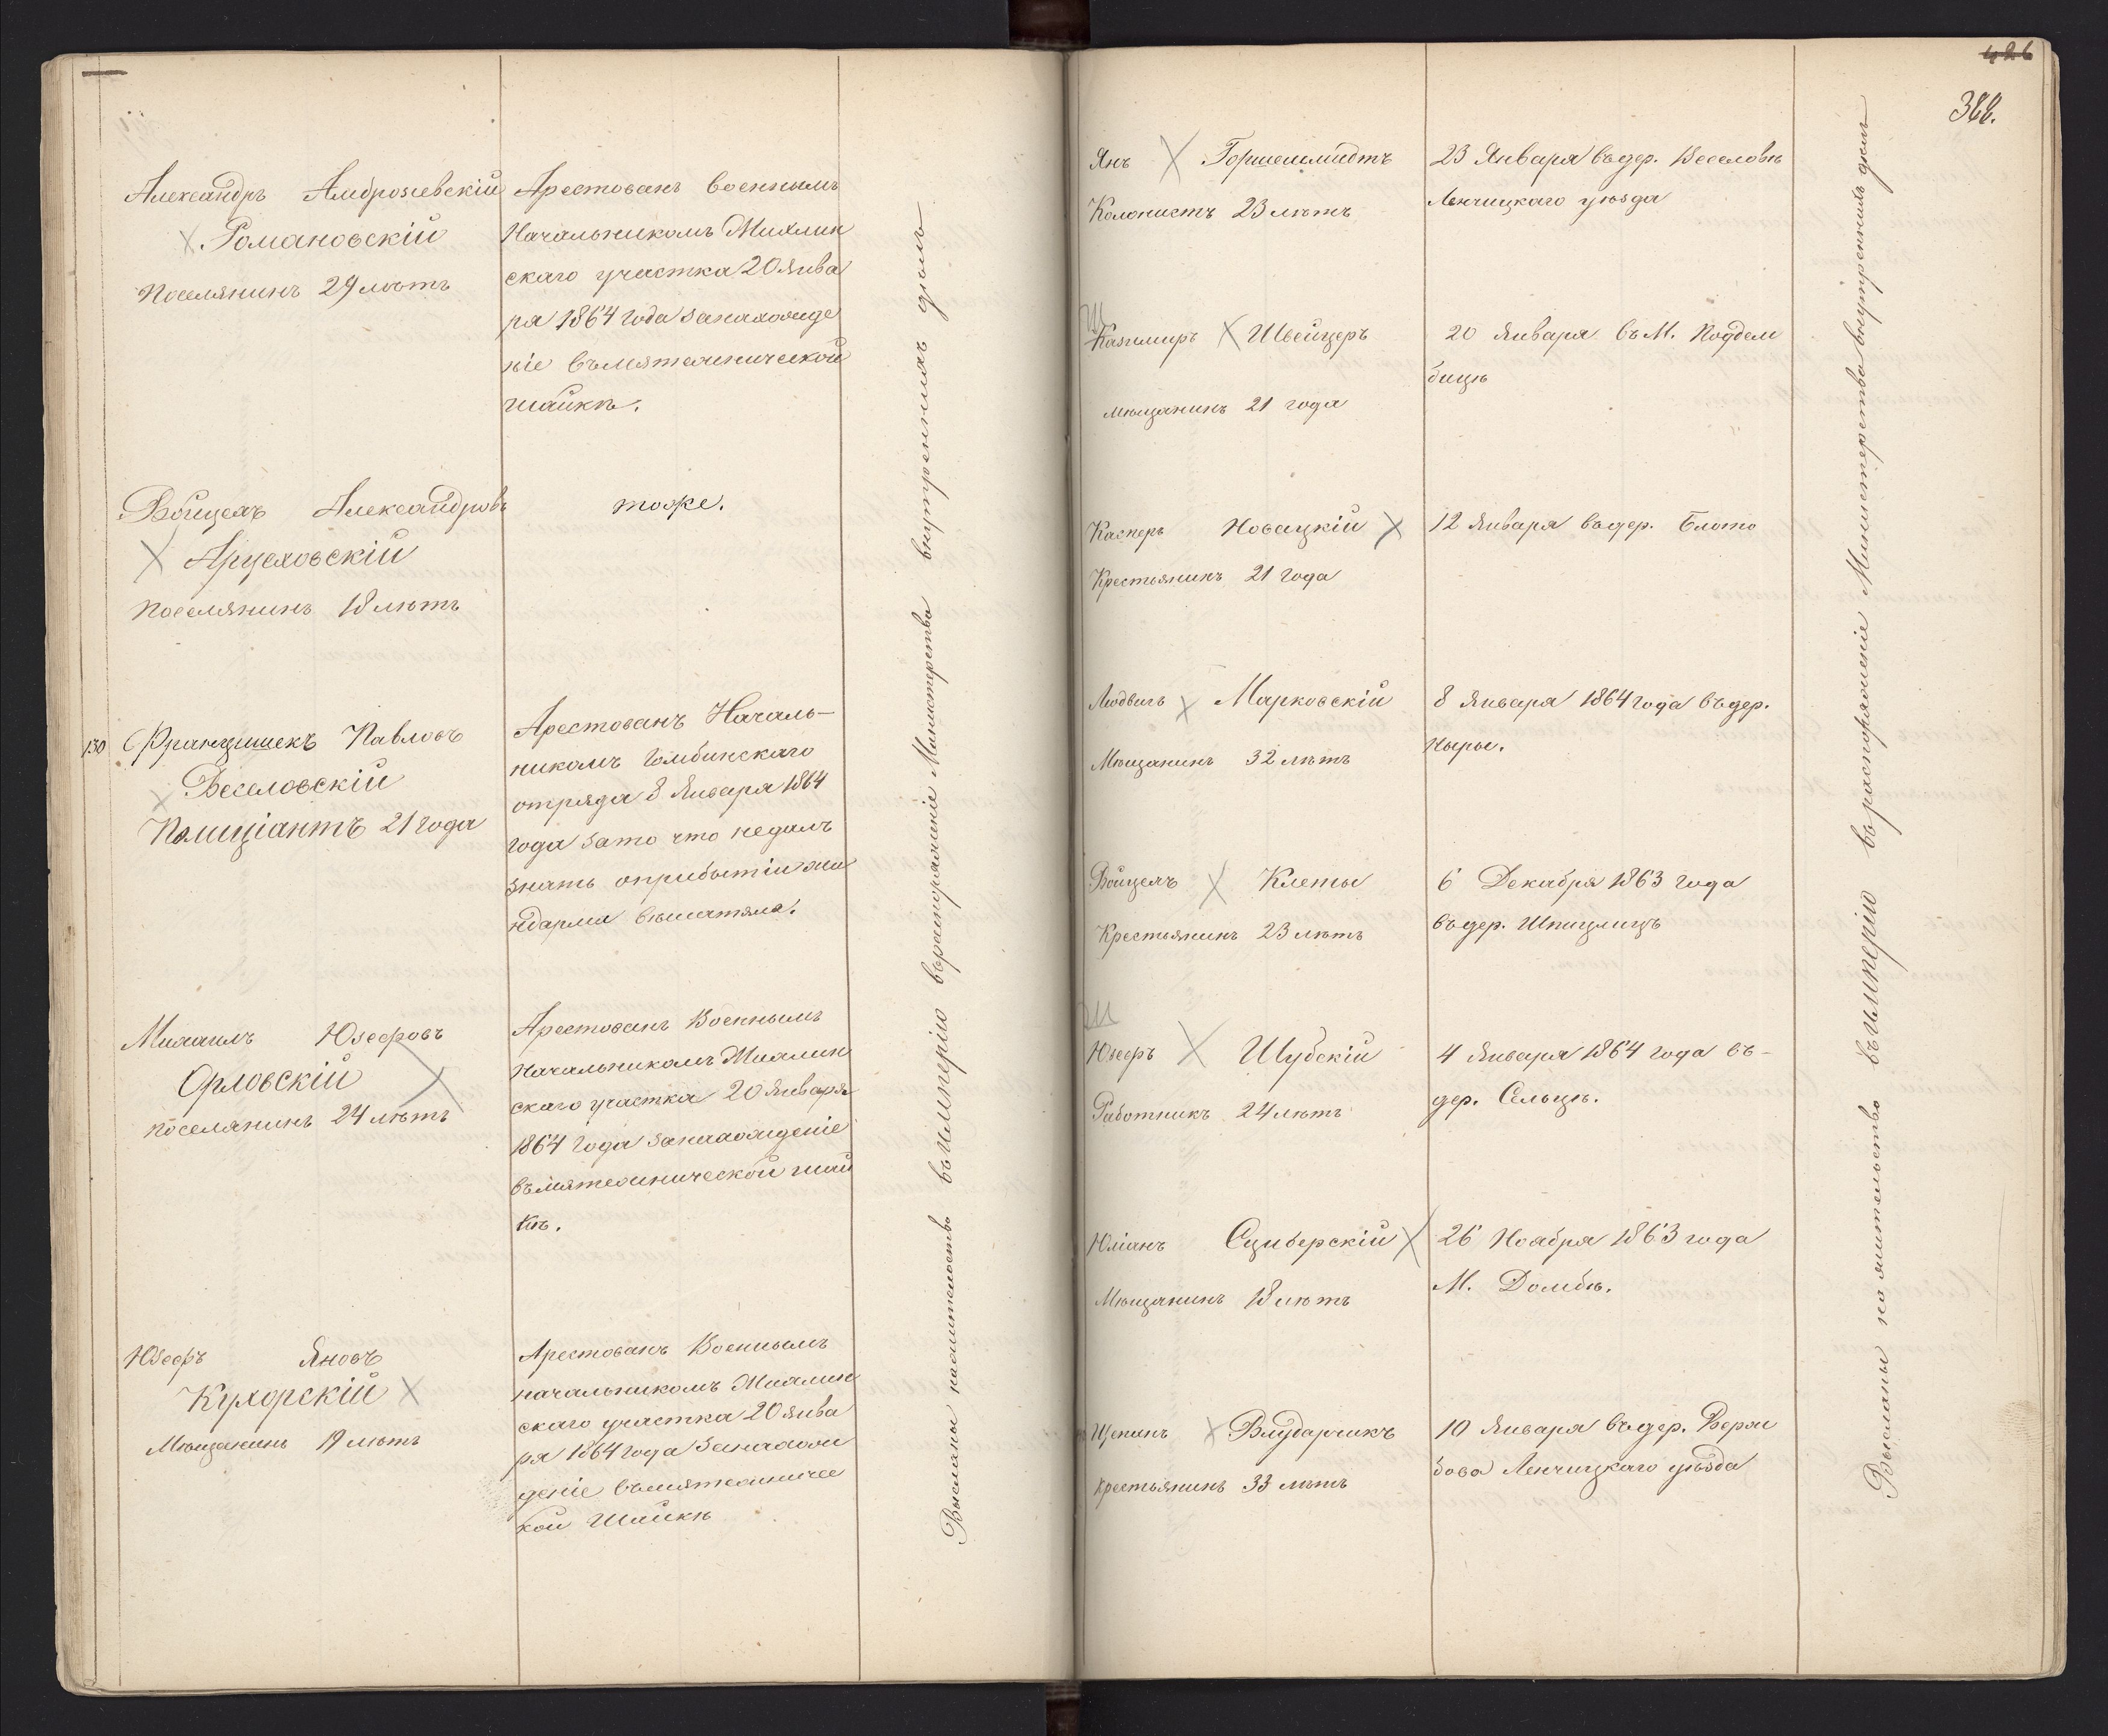 Александръ Амброзіевскій
Романовскій
Поселянинъ 29 лѣтъ
Арестованъ военнымъ
Начальникомъ Михлин
скаго участка 20 Янва
ря 1864 года за нахожде
ніе въ мятежнической
шайкѣ.
Войцехъ Александровъ
Арцеховскій
Поселянинъ 18 лѣтъ
тоже.
130 Францишекъ Павловъ
Веселовскій
Полиціантъ 21 года
Арестованъ Началь-
никомъ Гомбинскаго
отряда 8 Января 1864
года зато что недалъ
знать оприбытіи жа
ндарма
Михаилъ Юзефовъ
Орловскій
поселянинъ 24 лѣтъ
Арестованъ Военнымъ
Начальникомъ Михлин
скаго участка 20 Января
1864 года за нахожденіе
въ мятежнической шай
кѣ.
Юзефъ Яновъ
Кухорскій
Мѣщанинъ 19 лѣтъ
Арестованъ Военнымъ
начальникомъ Михлин
скаго участка 20 Янва
ря 1864 года за нахож
деніе въ мятежничес
кой Шайкѣ
Высланы на жительство въ Имперію въ распоряженіе Министерства внутреннихъ дѣлъ
426
388.
Янъ Горшешмидтъ
Колонистъ 23 лѣтъ
23 Января въ дер. Веселовѣ
Ленчицкаго уѣзда
Ш
Казимиръ Швейцеръ
мѣщанинъ 21 года
20 Января въ М. Поддем
бицѣ
Касперъ Новацкій
Крестьянинъ 21 года
12 Января въ дер. Блото
Людвигъ Марковскій
Мѣщанинъ 32 лѣтъ
8 Января 1864 года въ дер.
Пыры.
Войцехъ Клеты
Крестьянинъ 23 лѣтъ
6 Декабря 1863 года
въ дер. Шпицлицъ
Ш
Юзефъ Шубскій
Работникъ 24 лѣтъ
4 Января 1864 года въ-
дер. Сельцѣ.
Юліанъ Сциберскій
Мѣщанинъ 18 лѣтъ
26 Ноября 1863 года
М. Домбѣ.
Щепанъ Влударчикъ
крестьянинъ 33 лѣтъ
10 Января въ дер. Верж
бова Ленчицкаго уѣзда
Высланы на жительство въ Имперію въ распоряженіе Министерства внутреннихъ дѣлъ